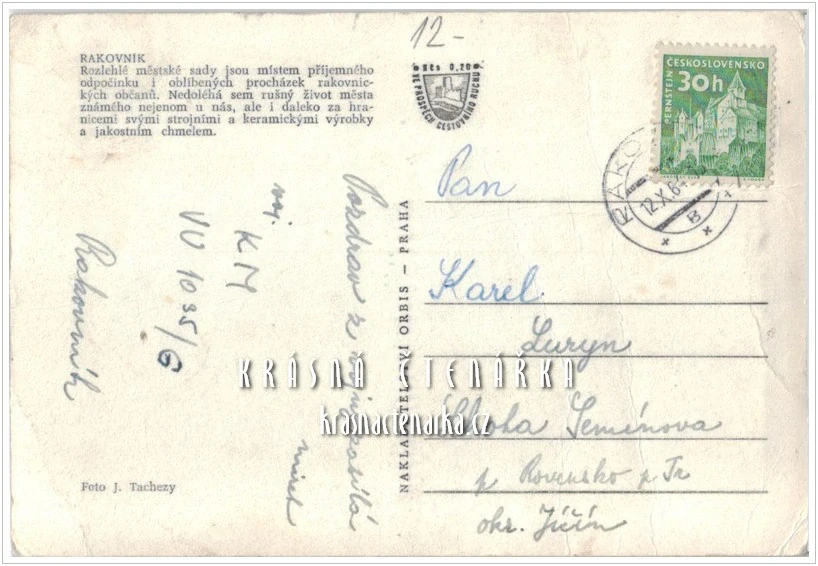 12-
RAKOVNÍK
Rozlehlé městské sady jsou místem příjemného
odpočinku i oblíbených procházek rakovnic-
kých občanů. Nedoléhá sem rušný život města
známého nejenom u nás, ale i daleko za hra-
nicemi svými strojními a keramickými výrobky
a jakostním chmelem.
Kčs 0,20
VE PROSPĚCH CESTOVNÍHO RUCHU
ČESKOSLOVENSKO
30h
PERNŠTEJN
RAKO
12.X.6
B
Pan
Karel
Luryn
Lhota Semínova
p Rovensko p Tr
okr. Jičín
Pozdrav z
voj. KM
VÚ 1035/G
Rakovník
NAKLADATELSTVÍ ORBIS — PRAHA
KRÁSNÁ ČTENÁŘKA
krasnactenarka.cz
Foto J. Tachezy